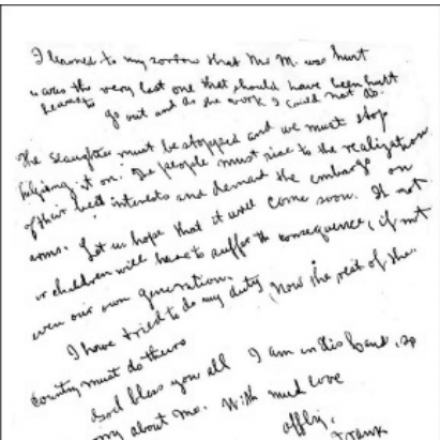 I learned to my sorrow that Mr M. was hurt
was the very last one that should have been hurt
go out and do the work I could not do.
The slaughter must be stopped and we must stop
helping it on. The people must rise to the realization
of their best interests and demand the embargo on
arms. Let us hope that it will come soon. If not
r children will have to suffer the consequence, if not
even our own generation.
I have tried to do my duty, Now the rest of the
country must do theirs
God bless you all I am in His hand, so
rry about me. With much love
affly,
Frank